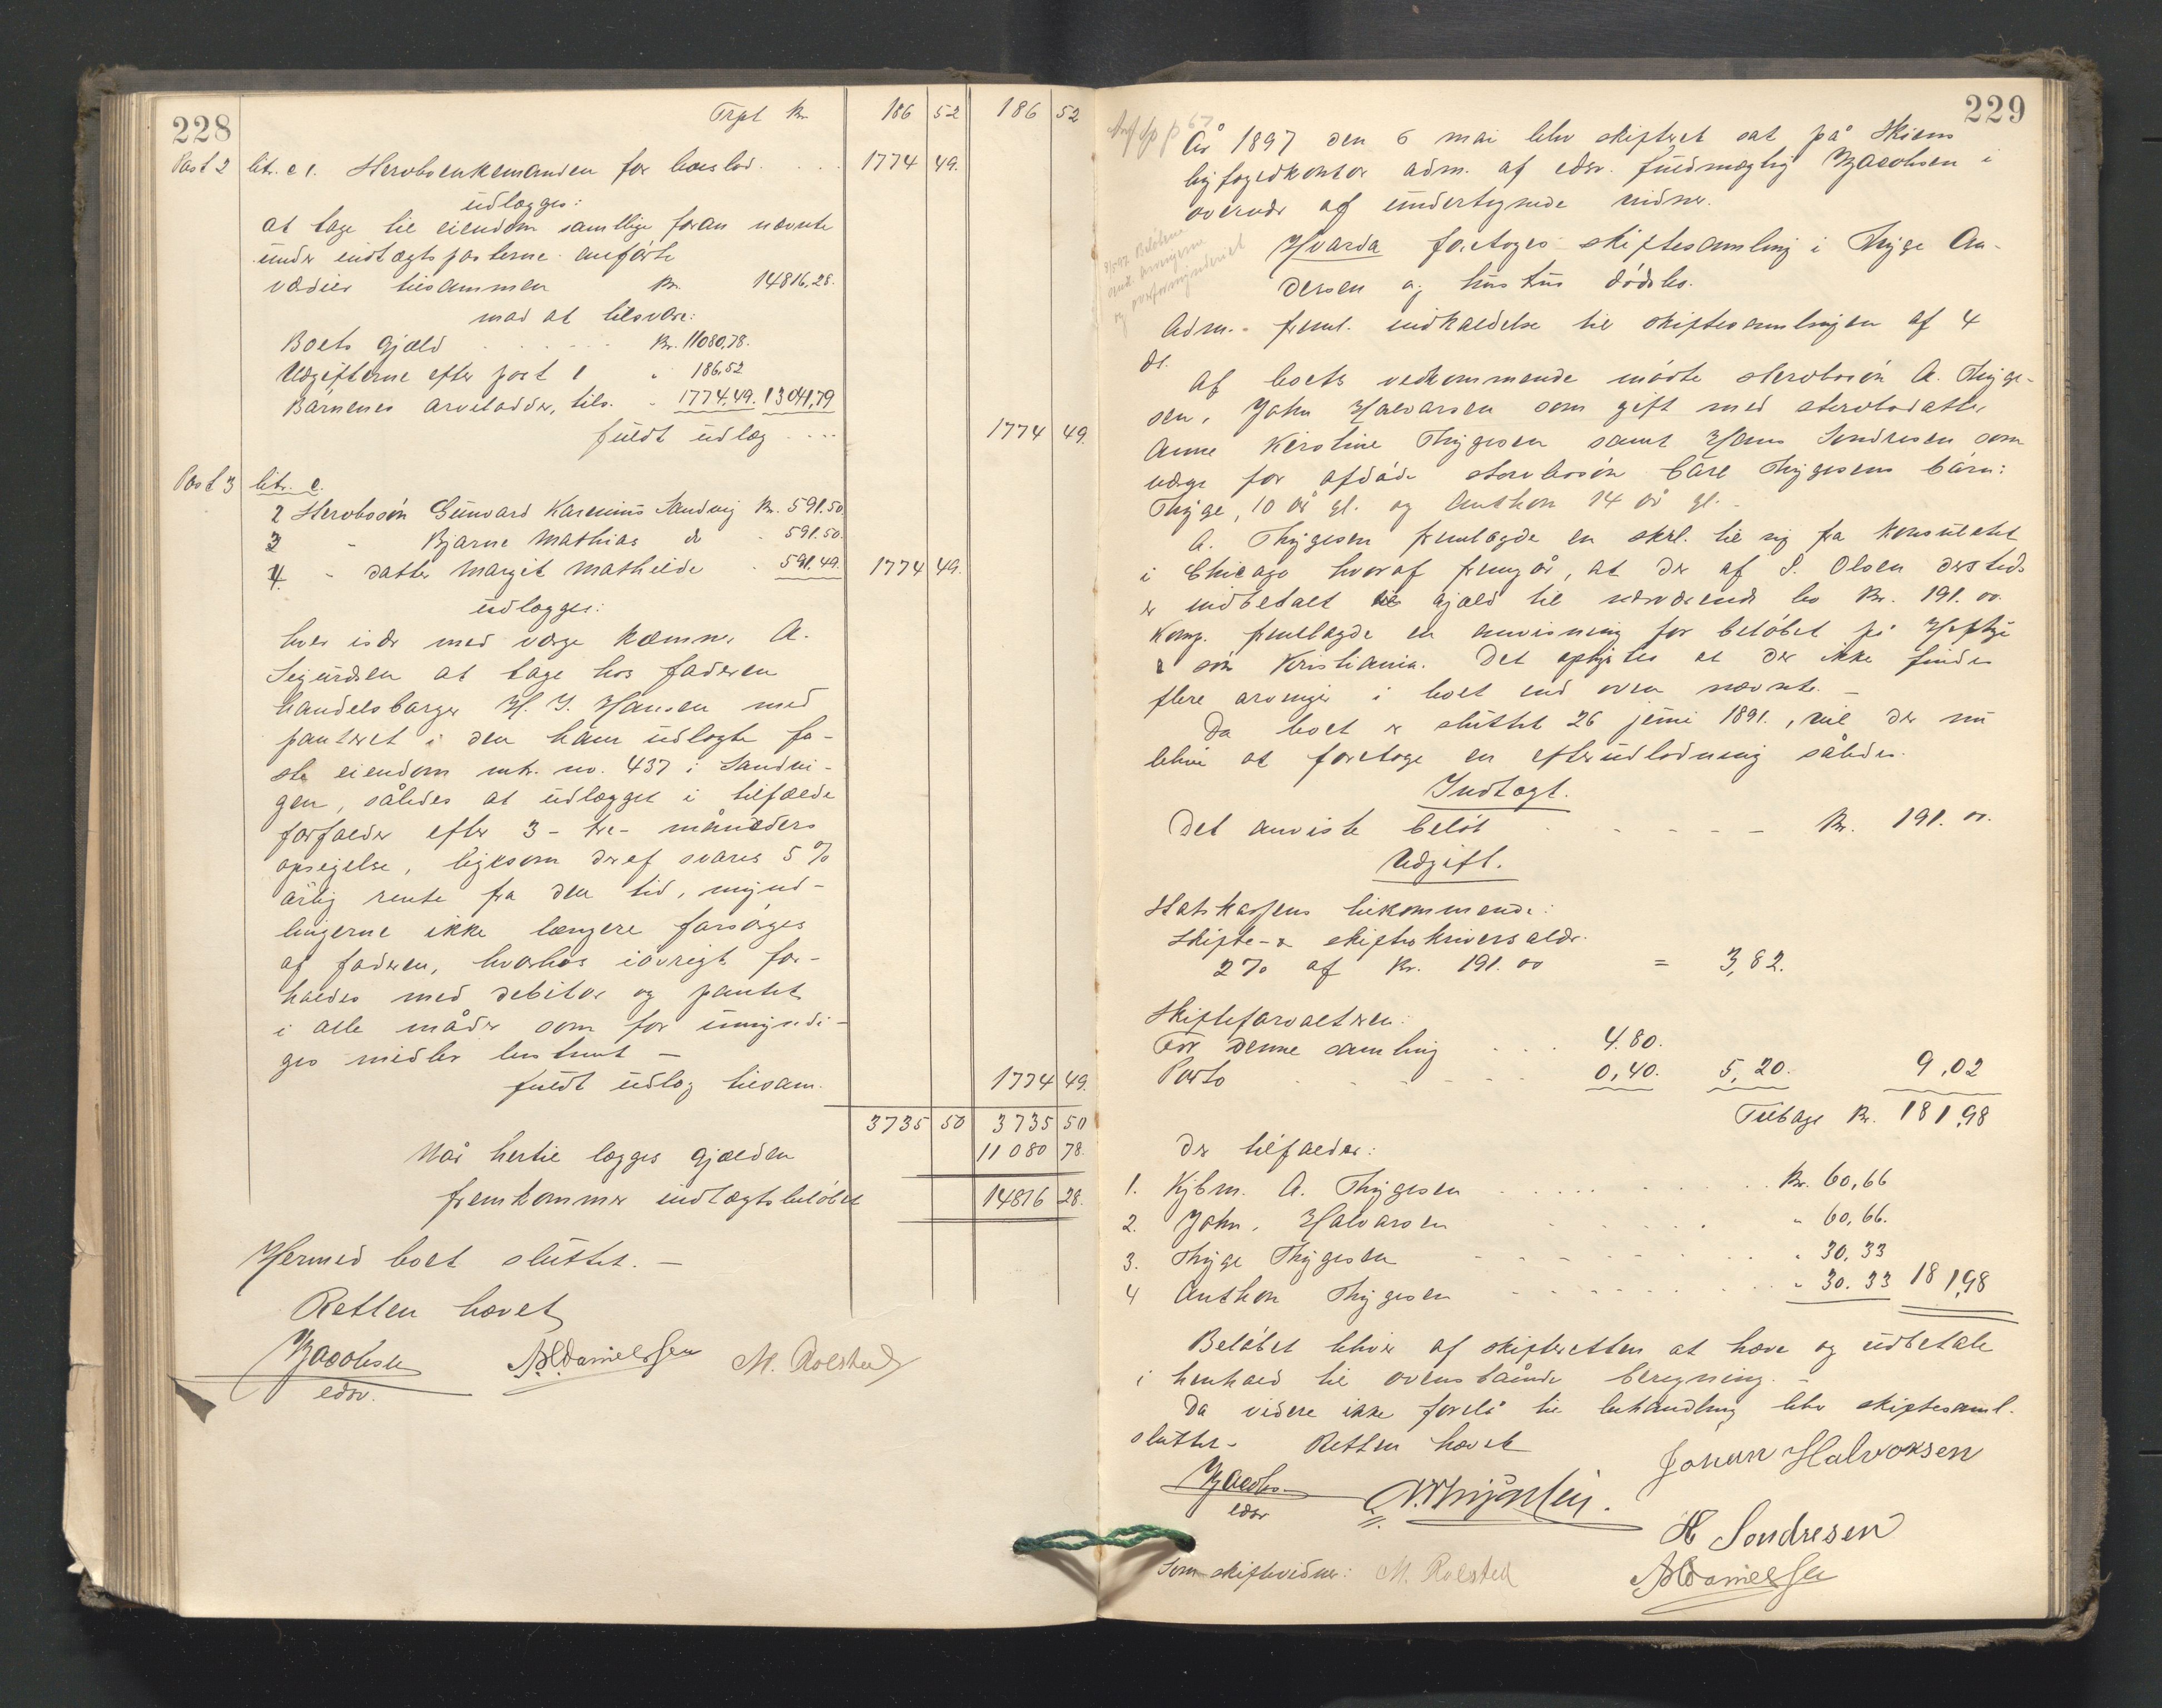 228
Trpt Kr. 186 52 186 52
Post 2 litr. c 1. Sterboenkemanden for boeslod . . . 1774 49.
udlægges:
at tage til eiendom samtlige foran nævnte
under indtægtsposterne anførte
værdier tilsammen Kr. 14816,28.
mod at tilsvare:
Boets gjæld . . . . . Kr. 11080,78.
Udgifterne efter post 1 " 186,52
Børnenes arvelodder, tils. " 1774,49. 13041,79
fuldt udlæg . . . . 1774 49.
Post 3 litr. c.
2 Sterbosøn Gunvard Karenius Sandvig Kr. 591.50.
3 " Bjarne Mathias do " 591.50.
4. " datter Margit Mathilde " 591.49. 1774 49.
udlægges:
hver især med værge kæmner A.
Sigurdsen at tage hos faderen
handelsborger H. J. Hansen med
panteret i den ham udlagte fa-
ste eiendom mtr. no. 437 i Sandvi-
gen, således at udlægget i tilfælde
forfalder efter 3 - tre - måneders
opsigelse, ligesom deraf svares 5 %
årlig rente fra den tid, mynd-
lingerne ikke længere forsørges
af faderen, hvorhos iøvrigt for-
holdes med debitor og pantet
i alle måder som for umyndi-
ges midler bestemt —
fuldt udlæg tilsam. 1774 49.
3735 50 3735 50
Når hertil lægges gjælden 11080 78.
fremkommer indtægtsbeløbet 14816 28.
Hermed boet sluttet. —
Retten hævet
Jacobsen A Danielssen M. Rolsted
edsv.
229
År 1897 den 6 mai blev skifteret sat på Skiens
byfogedkontor adm. af edsv. fuldmægtig Jacobsen i
overvær af undertegnede vidner.
Hvorda foretoges skiftesamling i Thyge An-
dersen og hustrus dødsbo.
Adm. freml. indkaldelse til skiftesamlingen af 4
ds.
Af boets vedkommende mødte sterbosøn A. Thyge-
sen, John Halvorsen som gift med sterbodatter
Anne Kirstine Thygesen samt Hans Sondresen som
værge for afdøde sterbosøn Carl Thygesens børn:
Thyge, 10 år gl. og Anthon 14 år gl. -
A. Thygesen fremlagde en skrl. til sig fra konsulatet
i Chicago hvoraf fremgår, at der af S. Olsen dersteds
er indbetalt gjæld til nærværende bo Kr. 191.00.
Komp. fremlagde en anvisning for beløbet på Heftye
& søn Kristiania. Det oplystes at der ikke findes
flere arvinger i boet end oven nævnte. —
Da boet er sluttet 26 juni 1891., vil der nu
blive at foretage en efterudlodning således.
Indtægt.
Det anviste beløb . - - - - Kr. 191.00.
Udgift.
Statskassens tilkommende:
Skifte- & skifteskriversaldr.
2 % af Kr. 191.00 = 3,82.
Skifteforvalteren:
For denne samling . . . 4.80.
Porto . - - - - 0,40. 5,20. 9,02
Tilbage Kr. 181,98
Der tilfalder:
1. Kjbm. A. Thygesen . . . . . Kr. 60,66
2. John. Halvorsen . . . " 60,66.
3. Thyge Thygesen - - - - " 30,33
4 Anthon Thygesen - - - - " 30.33 181,98
Beløbet bliver af skifteretten at hæve og udbetale
i henhold til ovenstående beregning. —
Da videre ikke forelå til behandling blev skiftesaml.
sluttet - Retten hævet
Johan Halvorsen
Jacobsen A. Thygesen.
edsv
H Sondresen
Som skiftevidner: M. Rolsted A Danielssen